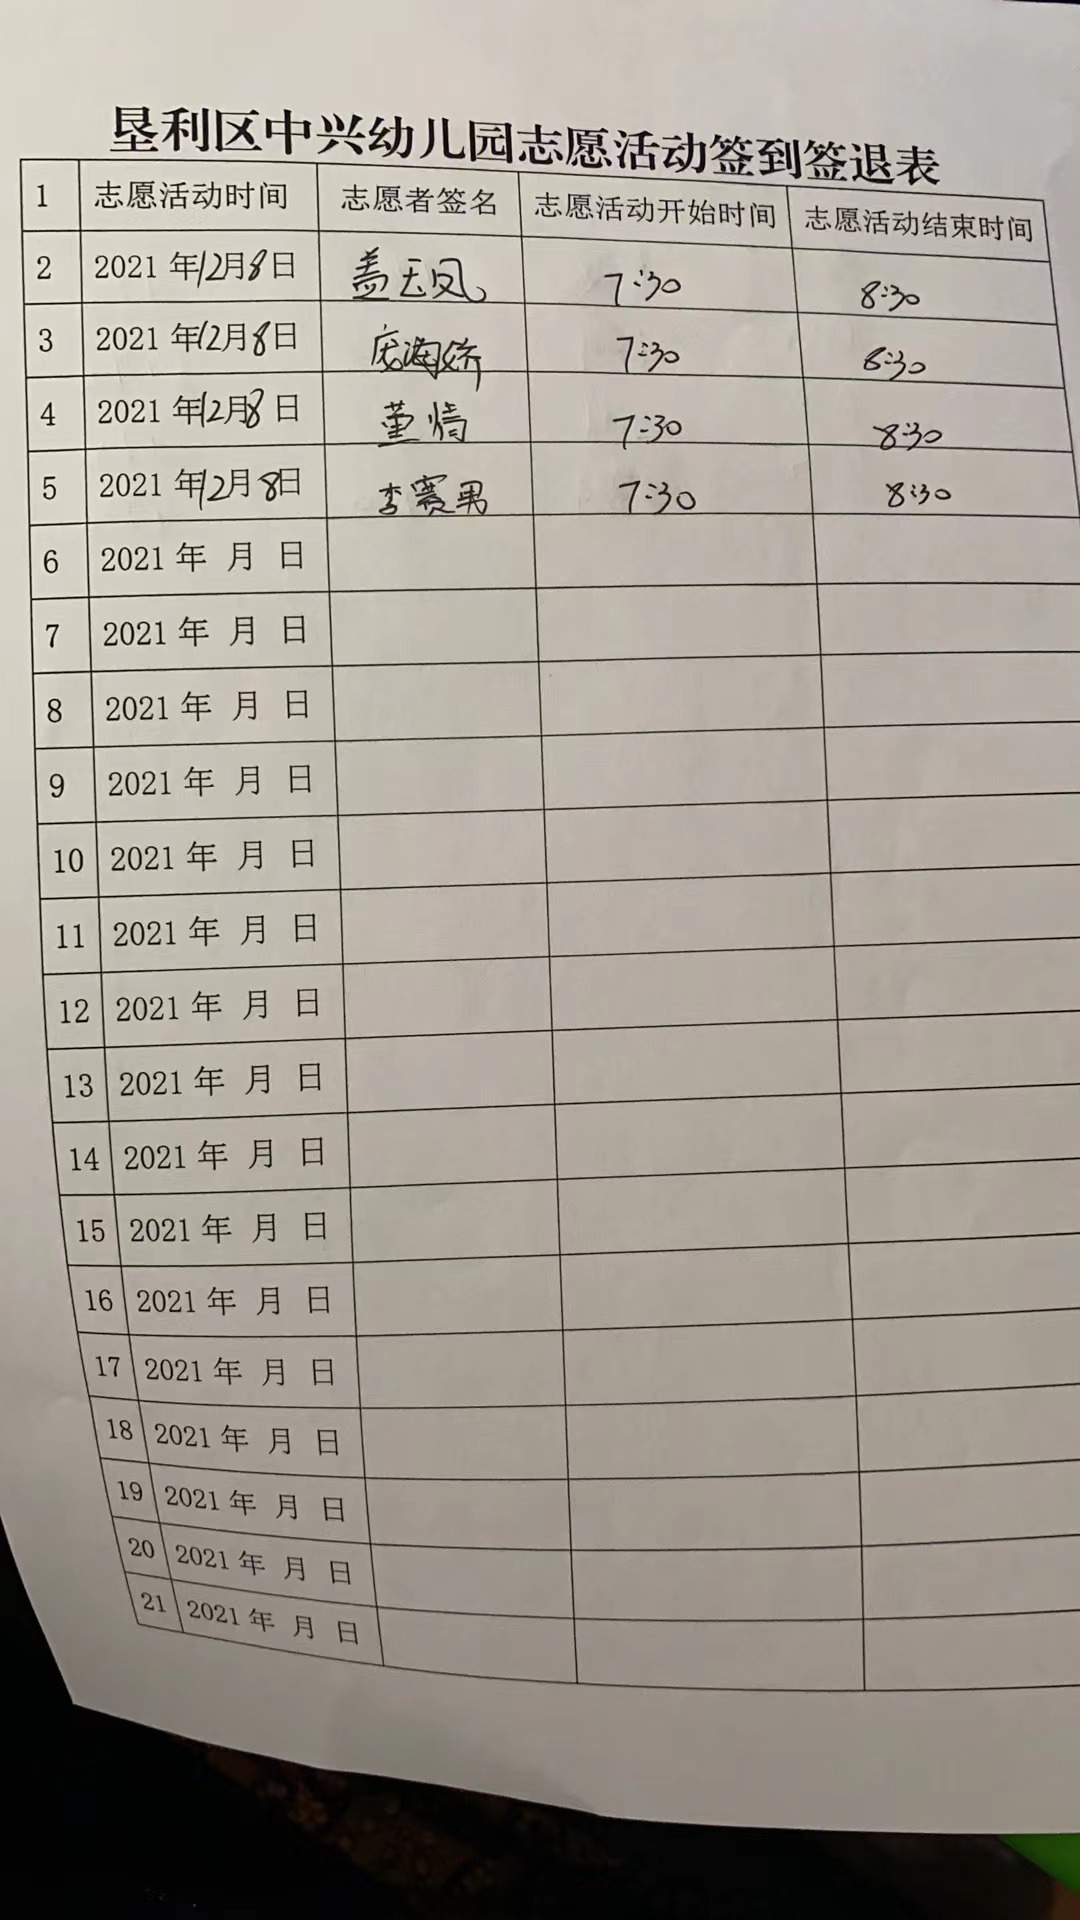 垦利区中兴幼儿园志愿活动签到签退表
1 志愿活动时间 志愿者签名 志愿活动开始时间 志愿活动结束时间
2 2021年12月8日 盖玉凤 7:30 8:30
3 2021年12月8日 庞海娇 7:30 8:30
4 2021年12月8日 董倩 7:30 8:30
5 2021年12月8日 李赛男 7:30 8:30
6 2021年 月 日
7 2021年 月 日
8 2021年 月 日
9 2021年 月 日
10 2021年 月 日
11 2021年 月 日
12 2021年 月 日
13 2021年 月 日
14 2021年 月 日
15 2021年 月 日
16 2021年 月 日
17 2021年 月 日
18 2021年 月 日
19 2021年 月 日
20 2021年 月 日
21 2021年 月 日